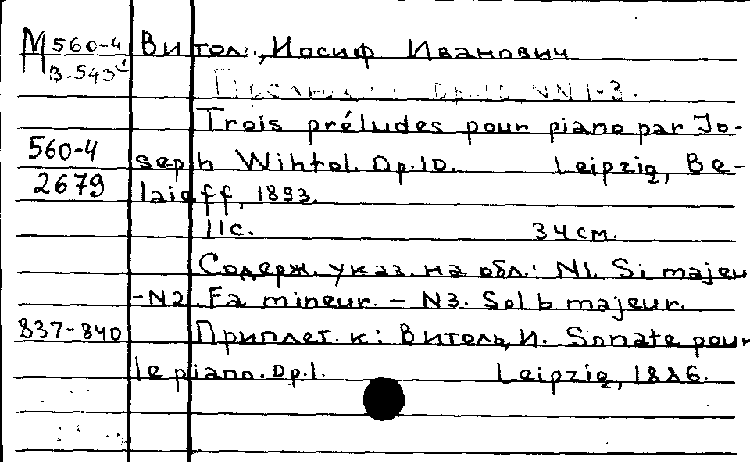 М 560-4 Витол., Иосиф Иванович
В-543
Ор.10 NN1-3.
Trois préludes pour piano par Jo-
560-4 seph Wihtol. Op.10. Leipzig, Be-
2679 laieff, 1893.
11с. 34см.
Содерж. указ. на обл.: N1. Si majeu
-N2. Fa mineur. – N3. Sol b majeur.
837-840 Приплет. к: Витоль, И. Sonate pour
le piano. Op.1. Leipzig, 1886.